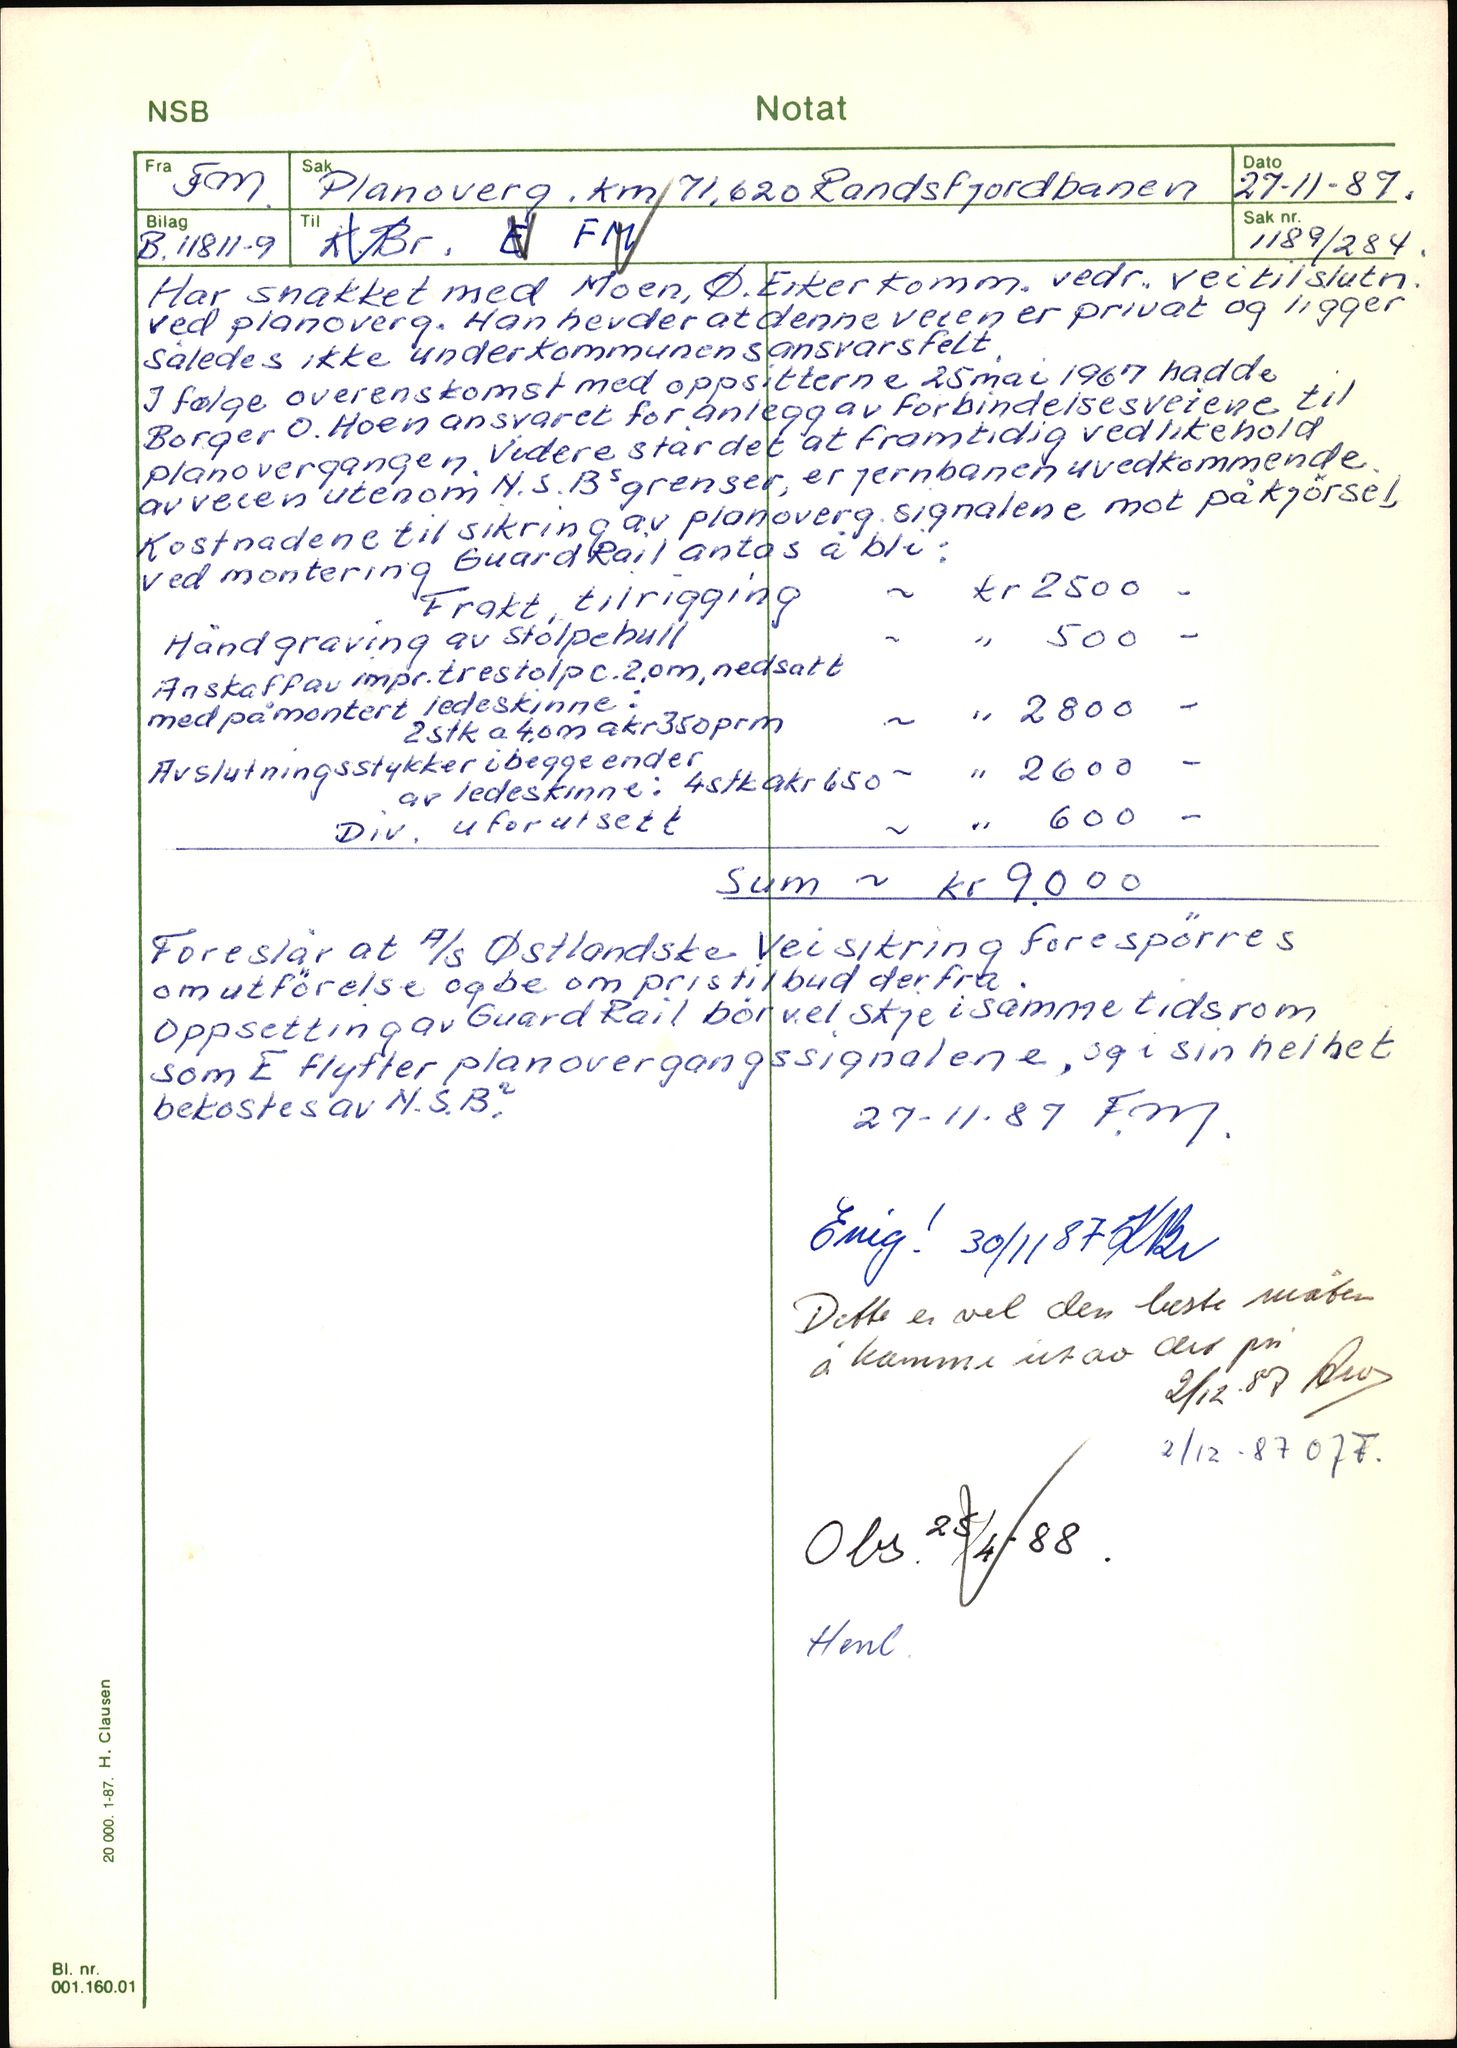 NSB
Notat
Fra FM.
Sak Planoverg. km 71,620 Randsfjordbanen
Dato 27-11-87.
Bilag B.11811-9
Til K.Br. E FM
Sak nr. 1189/284.
Har snakket med Moen, Ø. Eiker komm. vedr. veitilslutn.
ved planoverg. Han hevder at denne veien er privat og ligger
således ikke under kommunens ansvarsfelt.
I følge overenskomst med oppsitterne 25 mai 1967 hadde
Borger O. Hoen ansvaret for anlegg av forbindelsesveiene til
planovergangen. Videre står det at framtidig vedlikehold
av veien utenom N.S.Bs grenser, er jernbanen uvedkommende.
Kostnadene til sikring av planoverg. signalene mot påkjörsel,
ved montering Guard Rail antas å bli:
Frakt, tilrigging ~ kr 2500 -
Håndgraving av stolpehull ~ " 500 -
Anskaff av impr. trestolp c. 2,0m, nedsatt
med påmontert ledeskinne:
2 stk a 4,0m a kr 350 pr m ~ " 2800 -
Avslutningsstykker i begge ender
av ledeskinne: 4 stk a kr 650 ~ " 2600 -
Div. uforutsett ~ " 600 -
Sum ~ kr 9.000
Foreslår at A/s Østlandske Veisikring forespörres
om utförelse og be om pristilbud derfra.
Oppsetting av Guard Rail bör vel skje i samme tidsrom
som E flytter planovergangssignalene, og i sin helhet
bekostes av N.S.B.?
27-11-87 F.M.
Enig! 30/11 87 KBr
Dette er vel den beste måten
å komme ut av det på
2/12-87
2/12-87 OJF.
Obs. 25/4-88.
Henl.
20 000. 1-87. H. Clausen
Bl. nr.
001.160.01